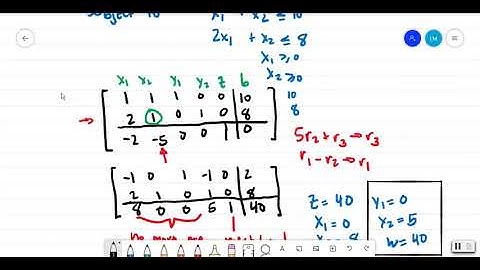 subject to x₁ + x₂ ≤ 10
2x₁ + x₂ ≤ 8
x₁ ≥ 0
x₂ ≥ 0
x₁ x₂ y₁ y₂ z b
1 1 1 0 0 10 10
2 1 0 1 0 8 8
-2 -5 0 0 1 0
5r₂ + r₃ → r₃
r₁ - r₂ → r₁
-1 0 1 -1 0 2
2 1 0 1 0 8
8 0 0 5 1 40
z = 40
x₁ = 0
y₁ = 0
y₂ = 5
w = 40
no more
LM